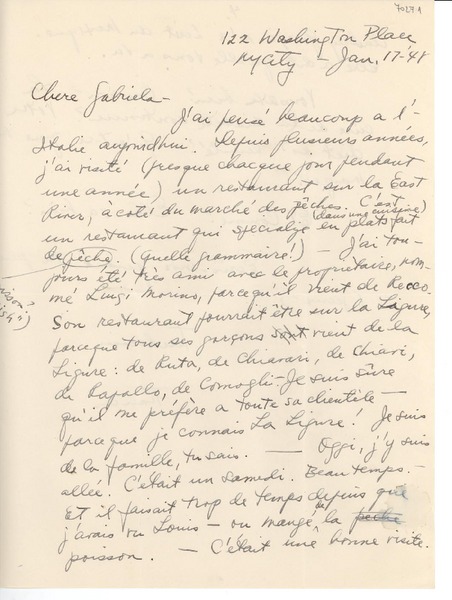 7027 A
122 Washington Place
NY City – Jan. 17-'48
Chere Gabriela –
J'ai pensé beaucoup a l'
Italie aujourd'hui. Depuis plusieurs années,
j'ai visité (presque chacque jour pendant
une année) un restaurant sur la East
River, à coté du marché des pêches. C'est
un restaurant qui specialize (dans une cuisine) en plats fait
de pêche. (Quelle grammaire!) – J'ai tou-
jours été très ami avec le propriétaire, nom-
mé Luigi Morino, parcequ'il vient de Recco.
Son restaurant pourrait être sur la Ligure,
parceque tous ses garçons vient de la
Ligure: de Ruta, de Chiavari, de Chiari,
de Rapallo, de Comogli – Je suis sûre
qu'il me préfère a toute sa clientile –
parceque je connais La Ligure! Je suis
de la famille, tu sais. — Oggi, j'y suis
allée. C'était un samedi. Beau temps. –
Et il faisait trop de temps depuis que
j'avais vu Louis – on mangé la peche
poisson. — C'était une bonne visite.